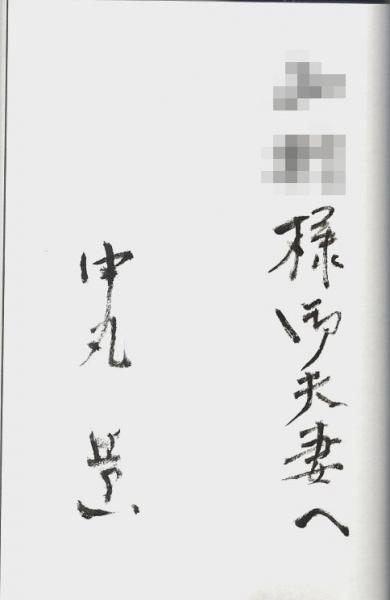 様御夫妻へ
中丸 薫